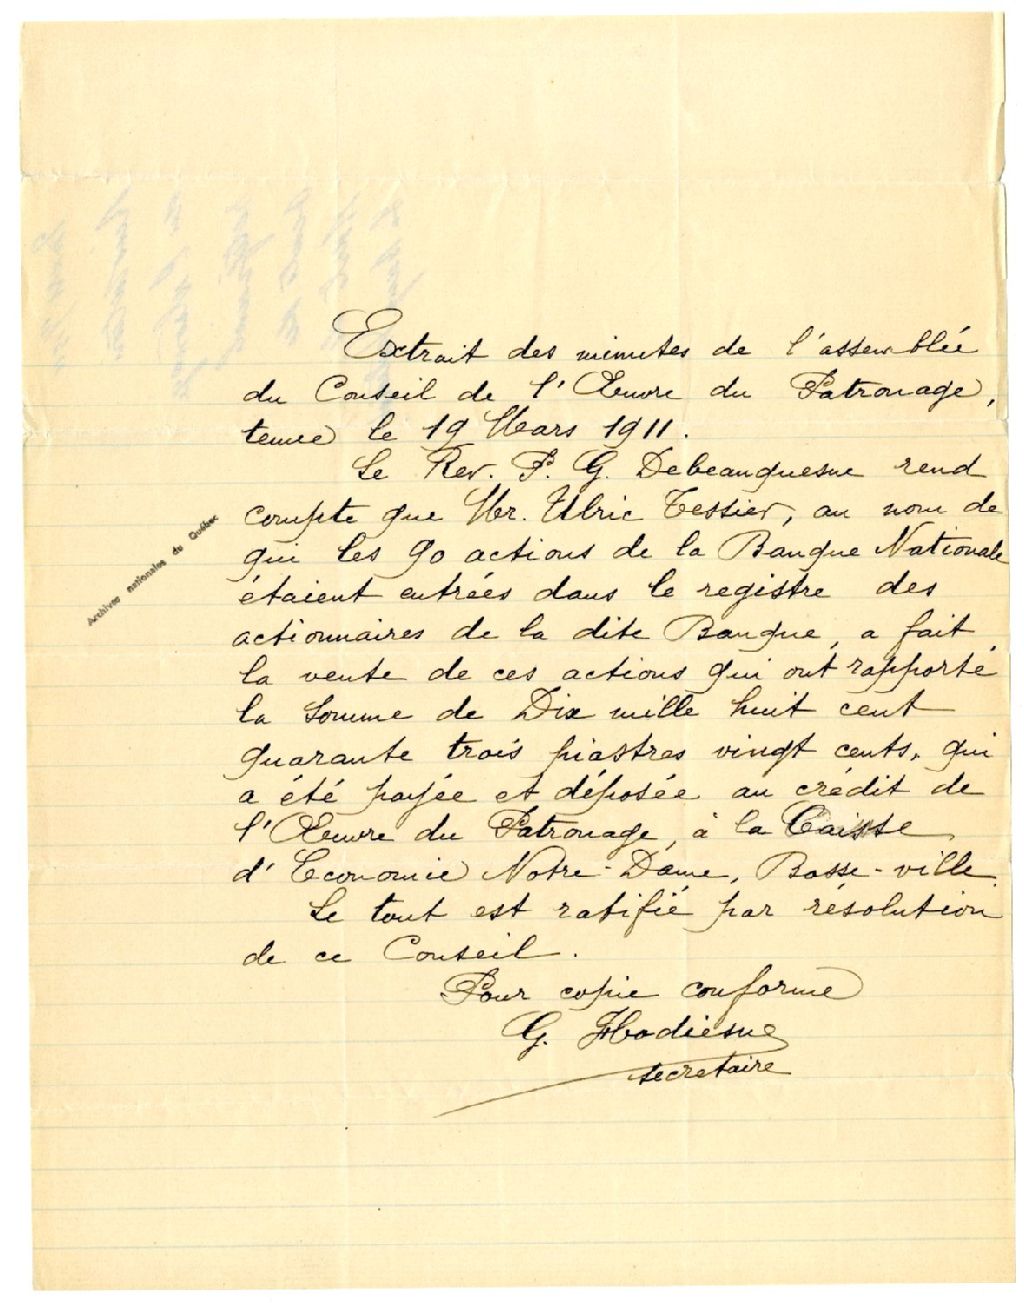 Extrait des minutes de l'assemblée
du Conseil de l'Œuvre du Patronage,
tenue le 19 Mars 1911.
Le Rev. P. G. Debeauquesne rend
compte que Mr. Ulric Tessier, au nom de
qui les 90 actions de la Banque Nationale
étaient entrées dans le registre des
actionnaires de la dite Banque, a fait
la vente de ces actions qui ont rapporté
la somme de Dix mille huit cent
quarante trois piastres vingt cents, qui
a été payée et déposée au crédit de
l'Œuvre du Patronage, à la Caisse
d'Economie Notre-Dame, Basse-ville.
Le tout est ratifié par résolution
de ce Conseil.
Pour copie conforme
G. Hodiesne
secretaire
Archives nationales du Québec